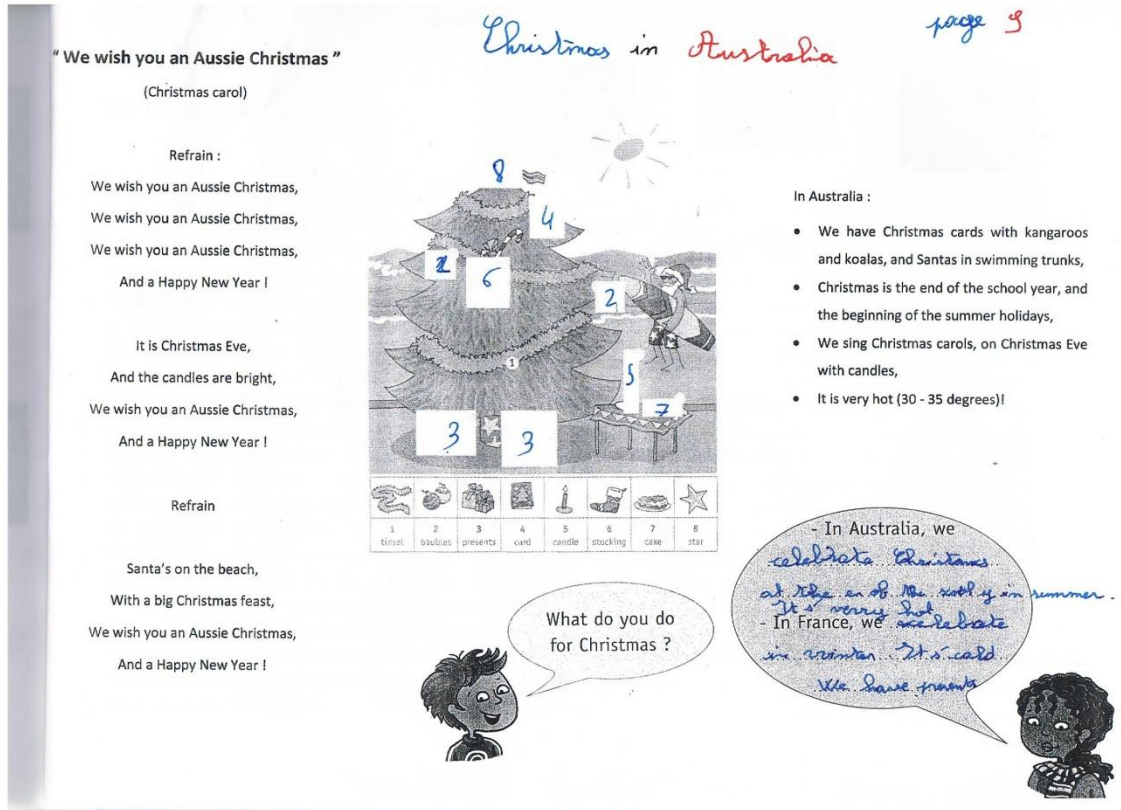 Christmas in Australia
page 9
" We wish you an Aussie Christmas "
(Christmas carol)
Refrain :
We wish you an Aussie Christmas,
We wish you an Aussie Christmas,
We wish you an Aussie Christmas,
And a Happy New Year !
It is Christmas Eve,
And the candles are bright,
We wish you an Aussie Christmas,
And a Happy New Year !
Refrain
Santa's on the beach,
With a big Christmas feast,
We wish you an Aussie Christmas,
And a Happy New Year !
8
4
6
2
1
5
7
3 3
1 2 3 4 5 6 7 8
tinsel baubles presents card candle stocking cake star
In Australia :
• We have Christmas cards with kangaroos
and koalas, and Santas in swimming trunks,
• Christmas is the end of the school year, and
the beginning of the summer holidays,
• We sing Christmas carols, on Christmas Eve
with candles,
• It is very hot (30 - 35 degrees)!
What do you do
for Christmas ?
- In Australia, we
celebrata Christams
at the en of the y in summer.
It's verry hot
- In France, we celebrate
in winter It's cald
We have presents